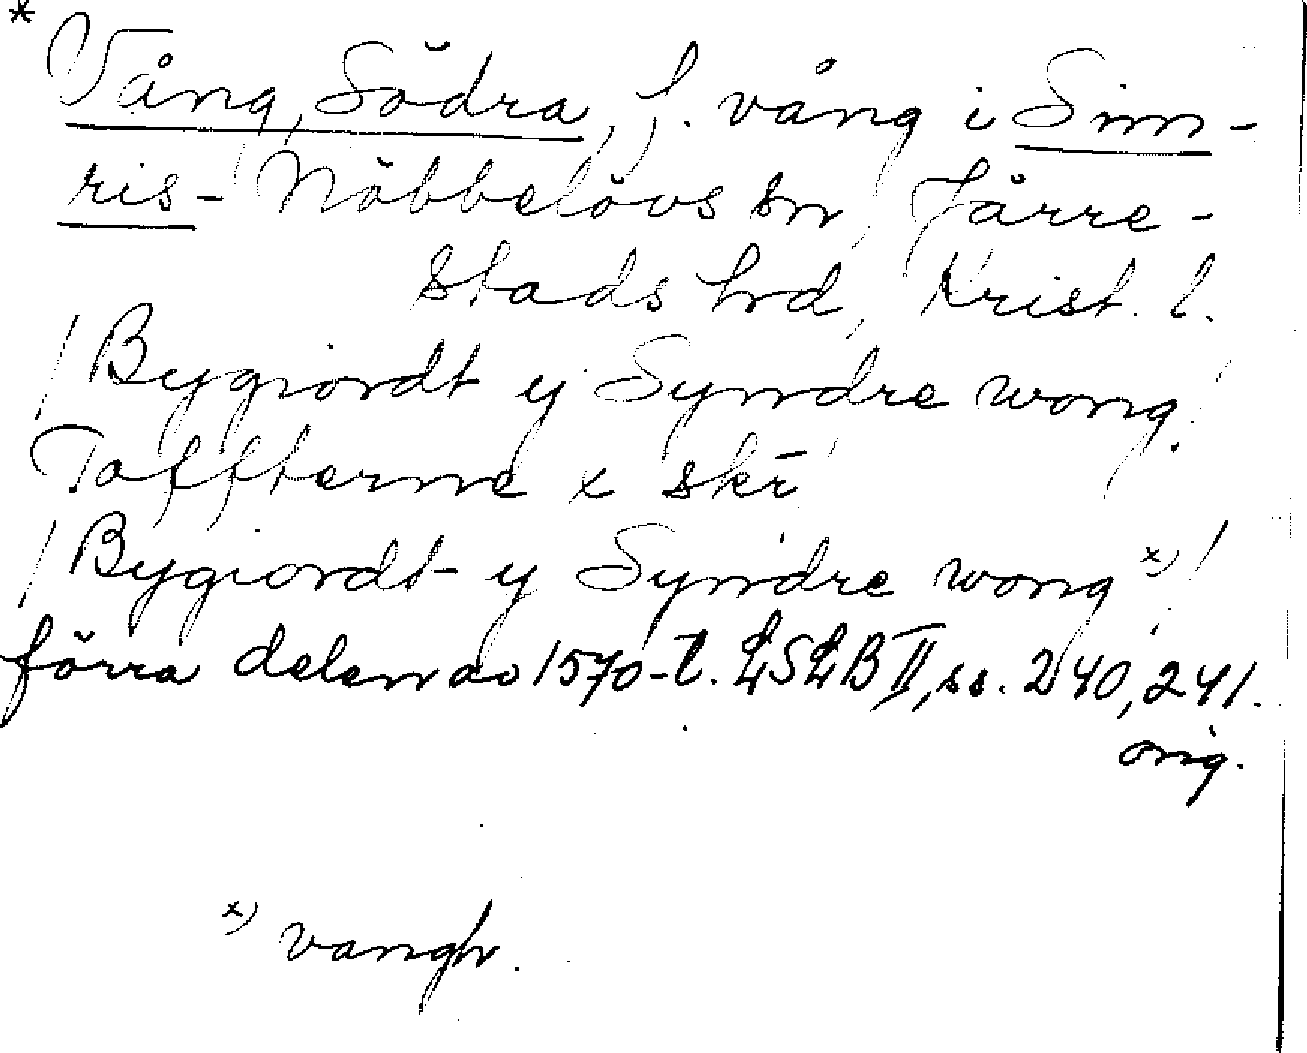 * Vång, Södra, f. vång i Sim-
ris-Nöbbelövs sn, Järre-
stads hrd, Krist. l.
/Bygiordt y Syndre wong!/
Toffterne x skr
/Bygiordt y Syndre wong x)/
förra delen av 1570-t. LSLB II, ss. 240, 241.
orig.
x) vangh.